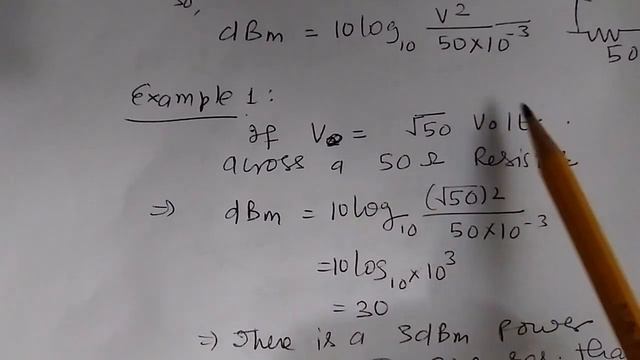 so,
dBm = 10log₁₀ V²/50×10⁻³
50
Example 1:
If V = √50 Volt
across a 50Ω
⇒ dBm = 10log₁₀ (√50)2/50×10⁻³
=10log₁₀×10³
= 30
⇒ There is a 3dBm power